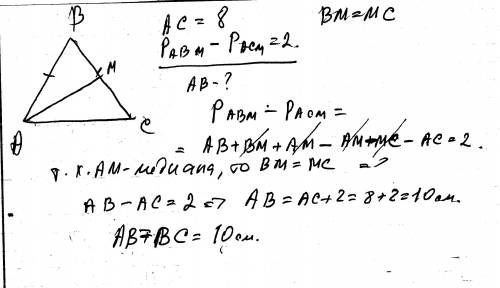 B
M
A
C
AC = 8
P_ABM − P_ACM = 2.
AB - ?
BM = MC
P_ABM − P_ACM =
= AB + BM + AM − AM + MC − AC = 2.
т.к. AM - медиана, то BM = MC =>
AB − AC = 2 => AB = AC + 2 = 8 + 2 = 10 см.
AB = BC = 10 см.